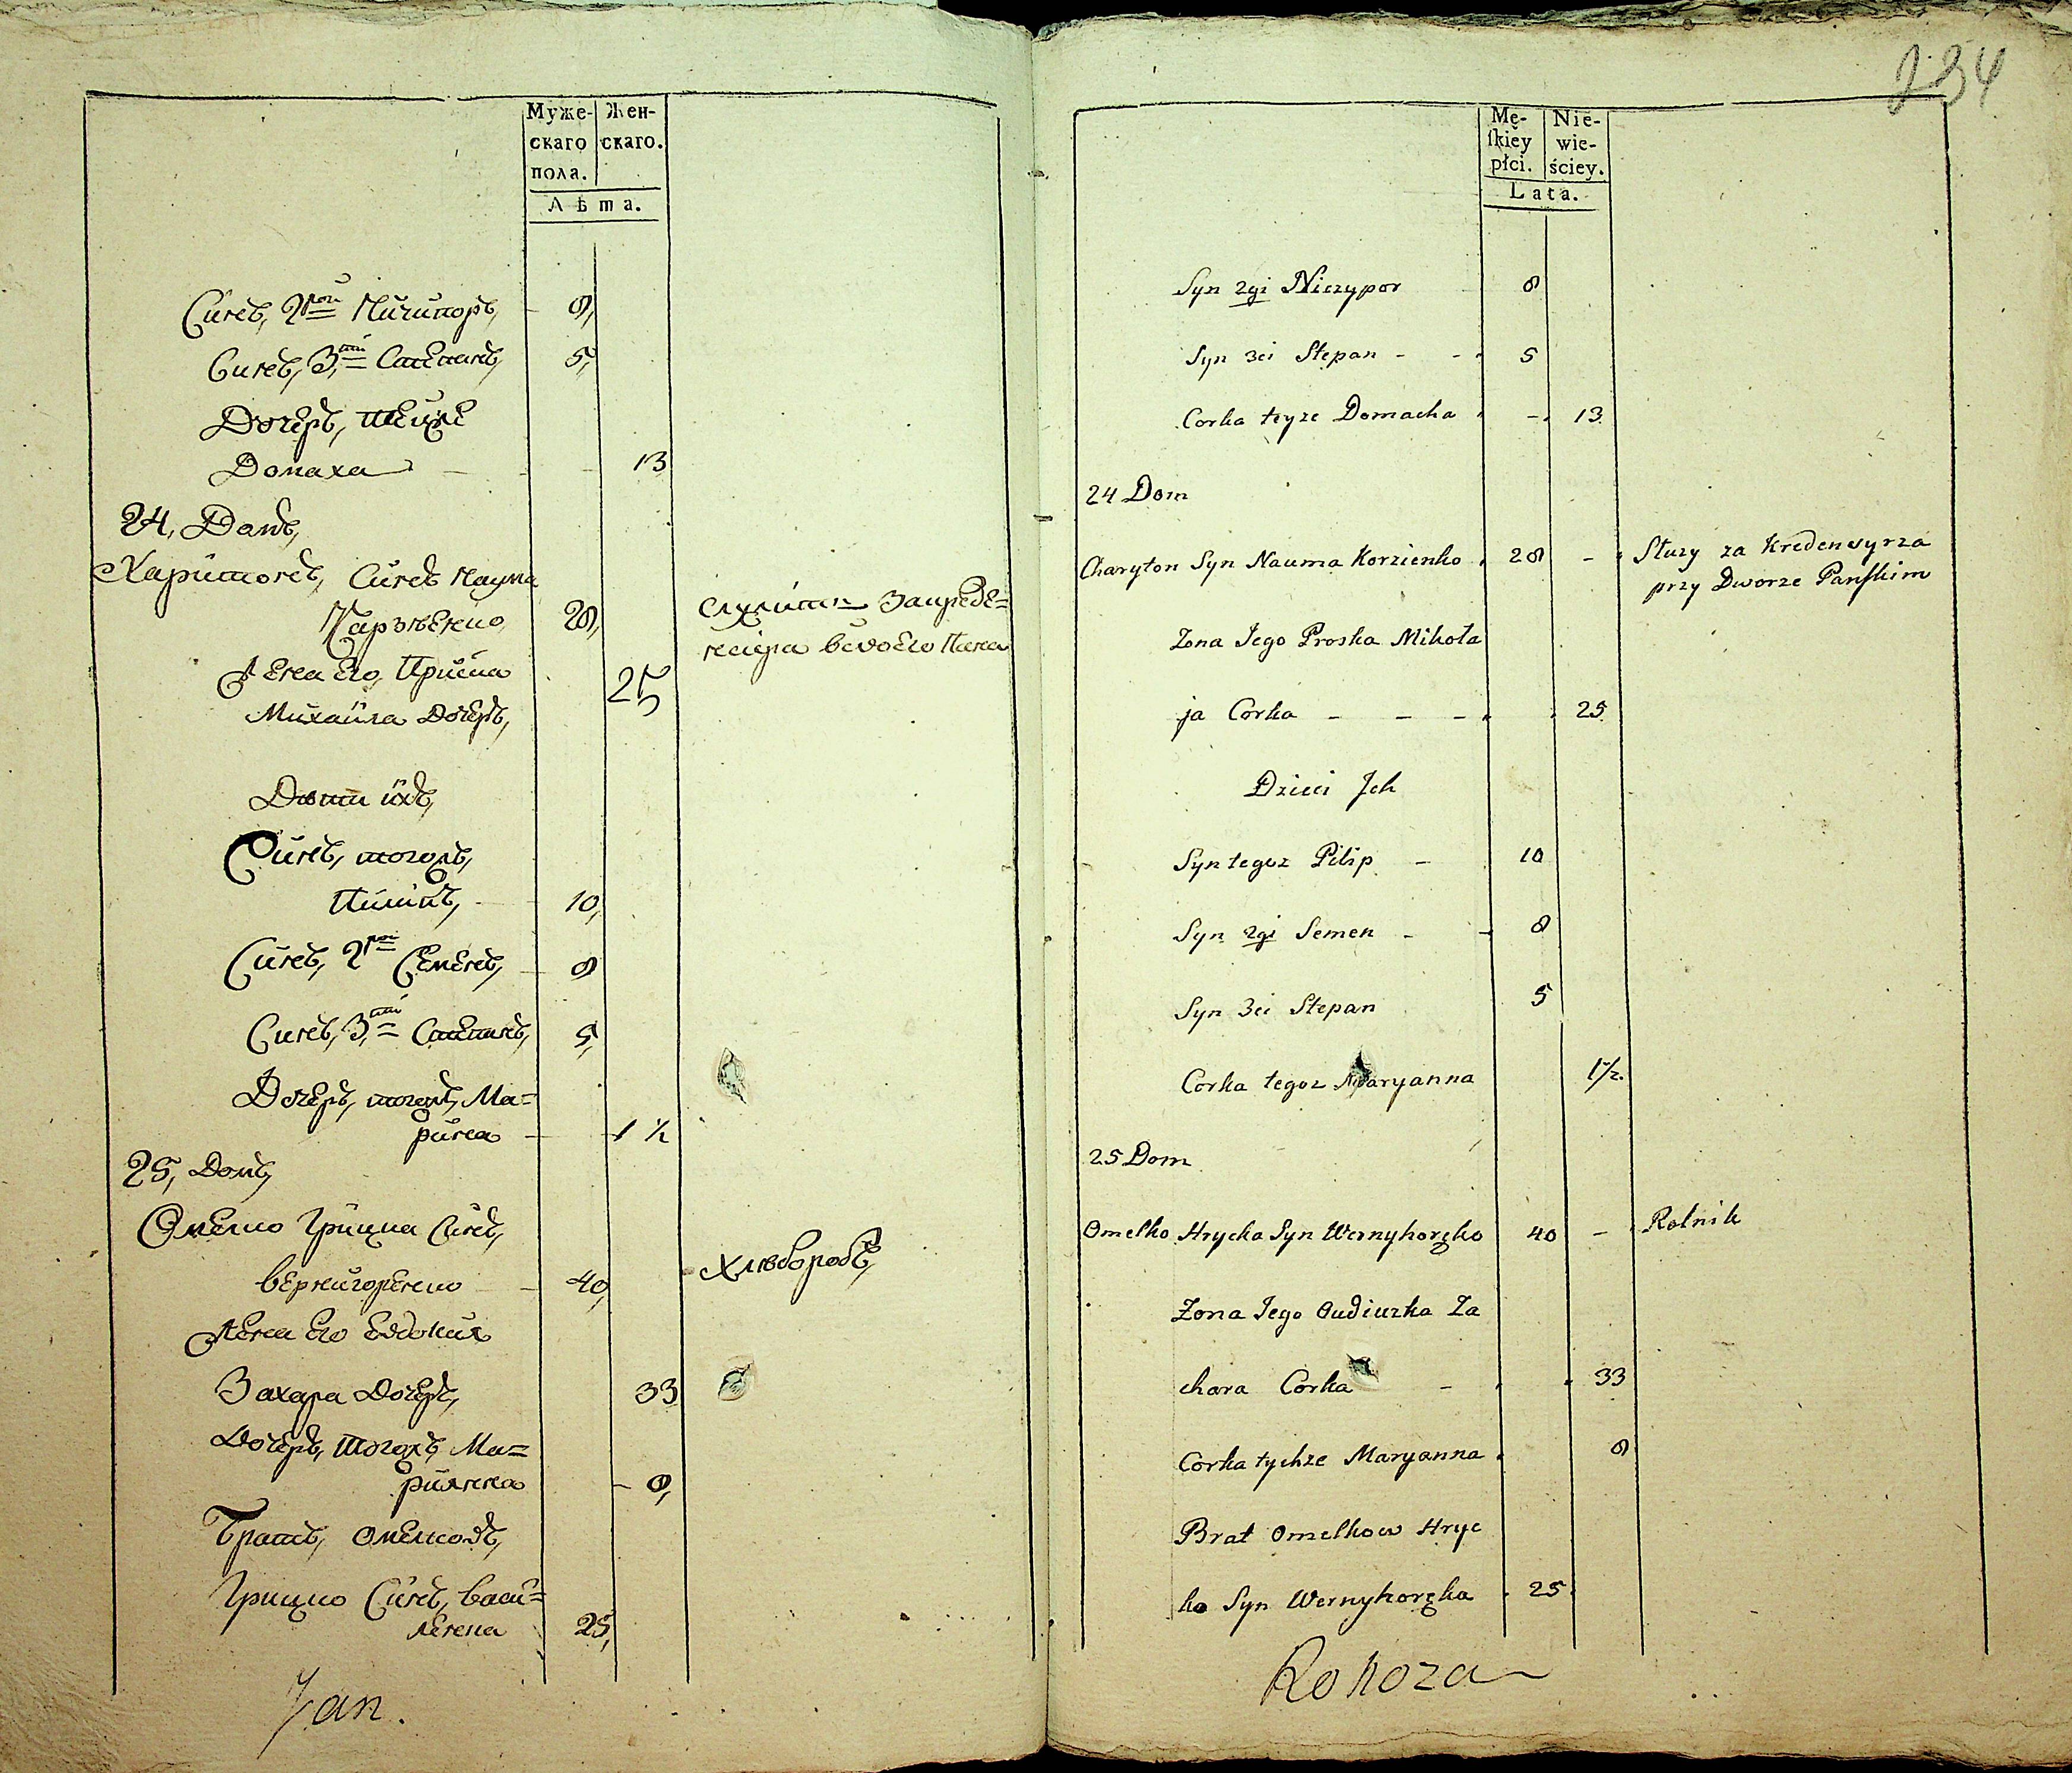 Муже-
скаго
пола.
Жен-
скаго.
Лѣта.
Синъ, 2рой Ничипоръ, 8,
Синъ, 3,тій Степанъ, 5,
Дочеръ, теиже
Домаха 13
24, Домъ,
Харитонъ, Синъ Наума
28,
Жена Его, Приска 25
Михайла Дочеръ,
Дѣти ихъ,
Синъ, тогожъ,
Пилипъ, 10,
Синъ, 2рой Семенъ, 8
Синъ, 3,тій Степанъ, 5,
Дочеръ, тогожъ, Ма=
рина 1 ½
25, Домъ,
Омелко Грицка Синъ,
Вернигоренко 40, Хлѣборобъ,
Жена Его Евдокия
Захара Дочеръ, 33
Дочеръ, тогожъ, Ма=
риянна 8,
Братъ, Омелковъ,
Грицко Синъ,
25,
Jan.
234
Mę-
ſkiey
płci.
Nie-
wie-
ściey.
Lata.
Syn 2gi Niczypor 8
Syn 3ci Stepan - - 5
Corka teyze Domacha - 13
24 Dom
Charyton Syn Nauma Korzienko 28 - Służy za Kredensyrza
przy Dworze Panſkim
Zona Jego Proska Mikoła
ja Corka - - - 25
Dzieci Jch
Syn tegoz Pilip - 10
Syn 2gi Semen - - 8
Syn 3ci Stepan 5
Corka tegoz Maryanna 1½.
25 Dom
Omelko Hrycka Syn Wernyhoręko 40 - Rolnik
Zona Jego Oudiuzka Za
chara Corka - 33
Corka tychze Maryanna 8
Brat Omelkow Hryc
ko Syn Wernyhoręka 25
Rohoza